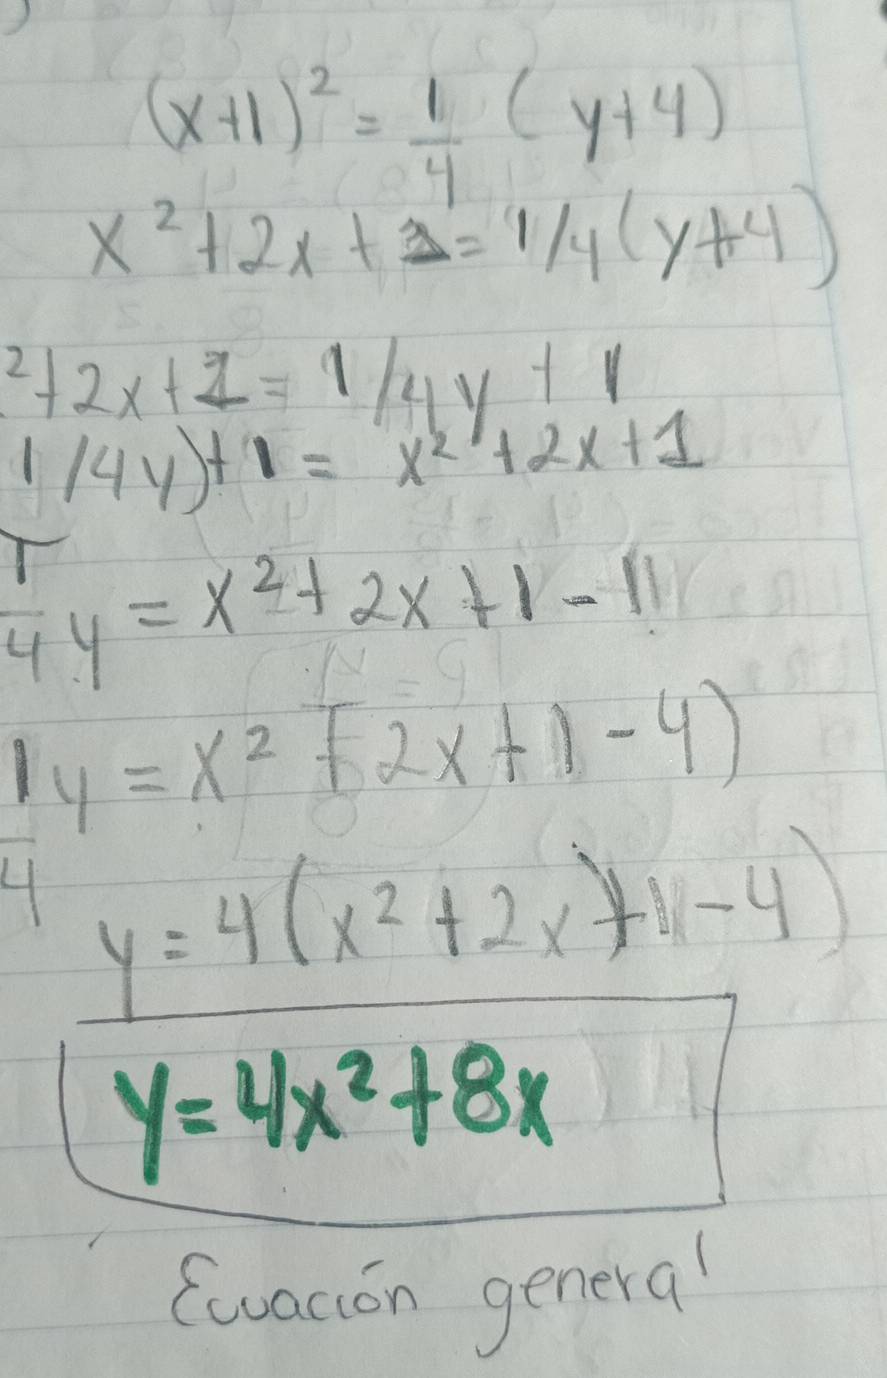 (x+1)² = 1/4 (y+4)
x²+2x+1=1/4(y+4)
²+2x+1=1/4y+1
1/4y)+1= x²+2x+1
1/4 y = x²+2x+1-1
1/4 y = x²+2x+1-4)
y=4(x²+2x)+1-4)
y=4x²+8x
Ecuación general